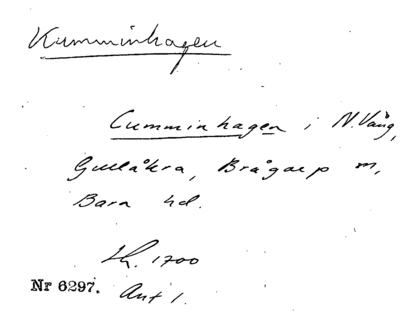 Kumminhagen
Cumminhagen i N. Vång,
Gullåkra, Brågarp m,
Bara hd.
Lh. 1700
Nr 6297. Akt 1.